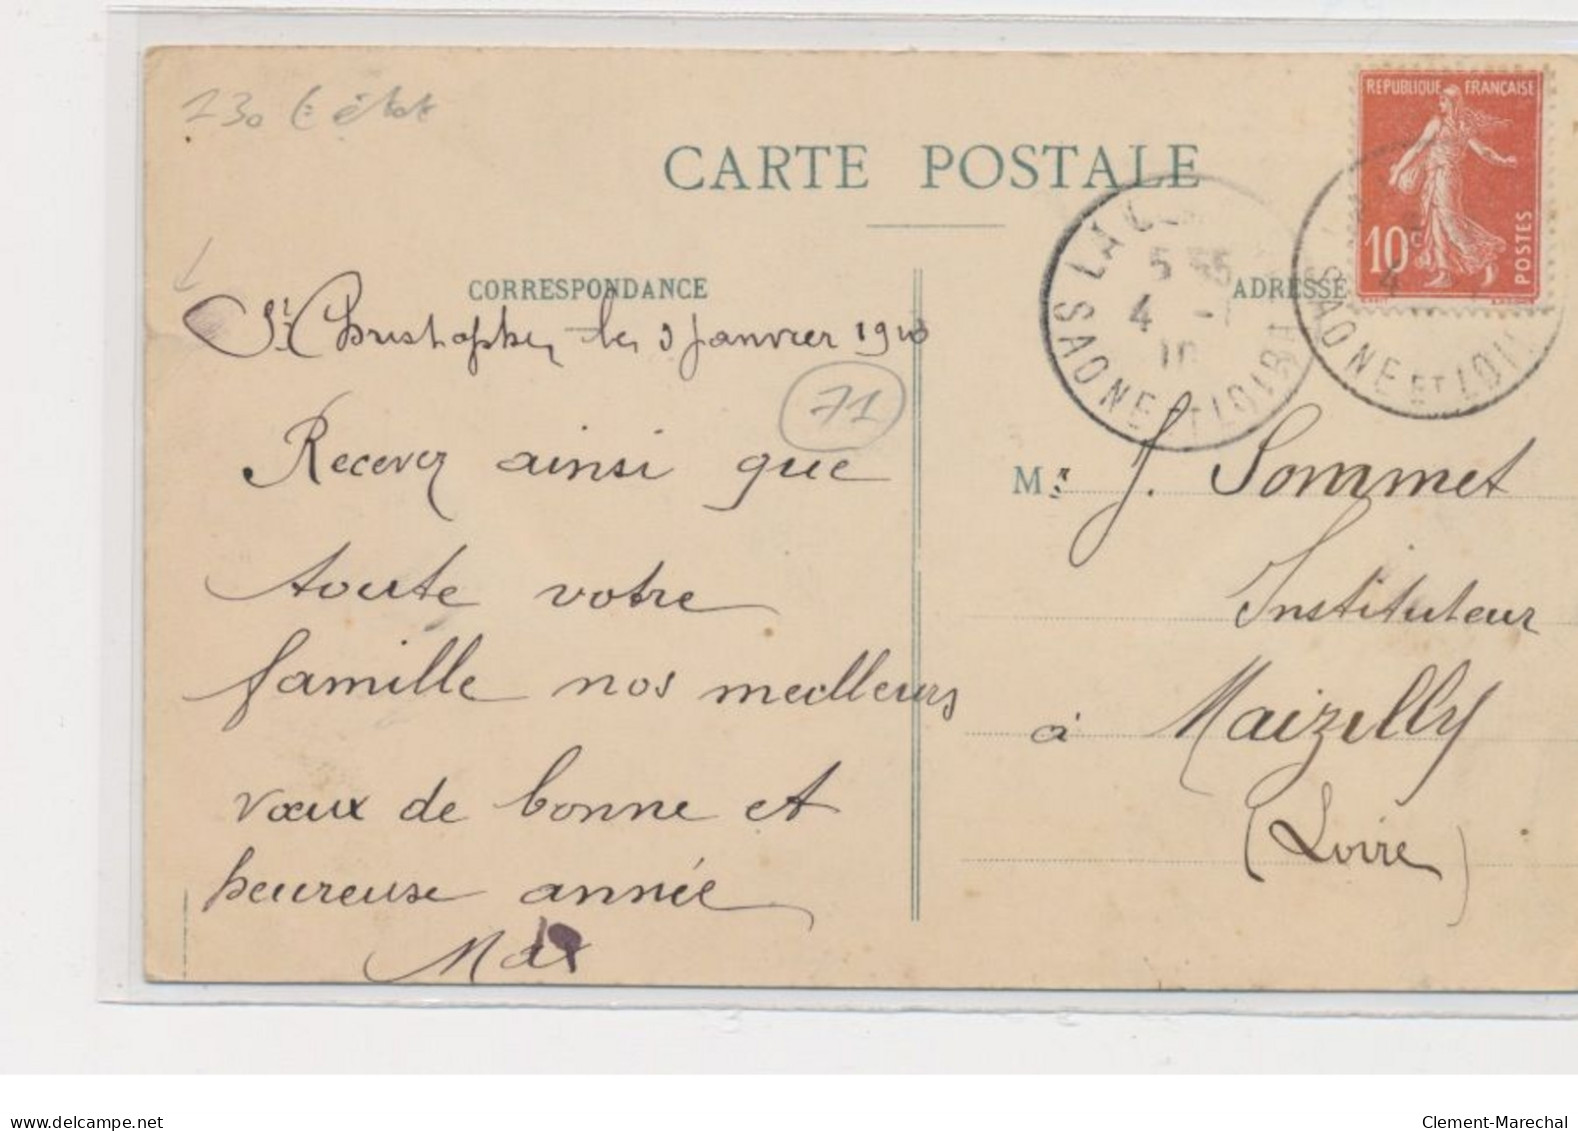 130 
CARTE POSTALE
REPUBLIQUE FRANÇAISE
10c
POSTES
LA
SAONE ET LOIRE
5 55
4 -1
10
4
SAONE ET LOIRE
CORRESPONDANCE
ADRESSE
St Christophe, le 3 Janvier 1910
71
Recevez ainsi que
toute votre
famille nos meilleurs
vœux de bonne et
heureuse année
Max
Mr J. Sommet
Instituteur
à Maizilly
(Loire)
www.delcampe.net
Clement-Marechal